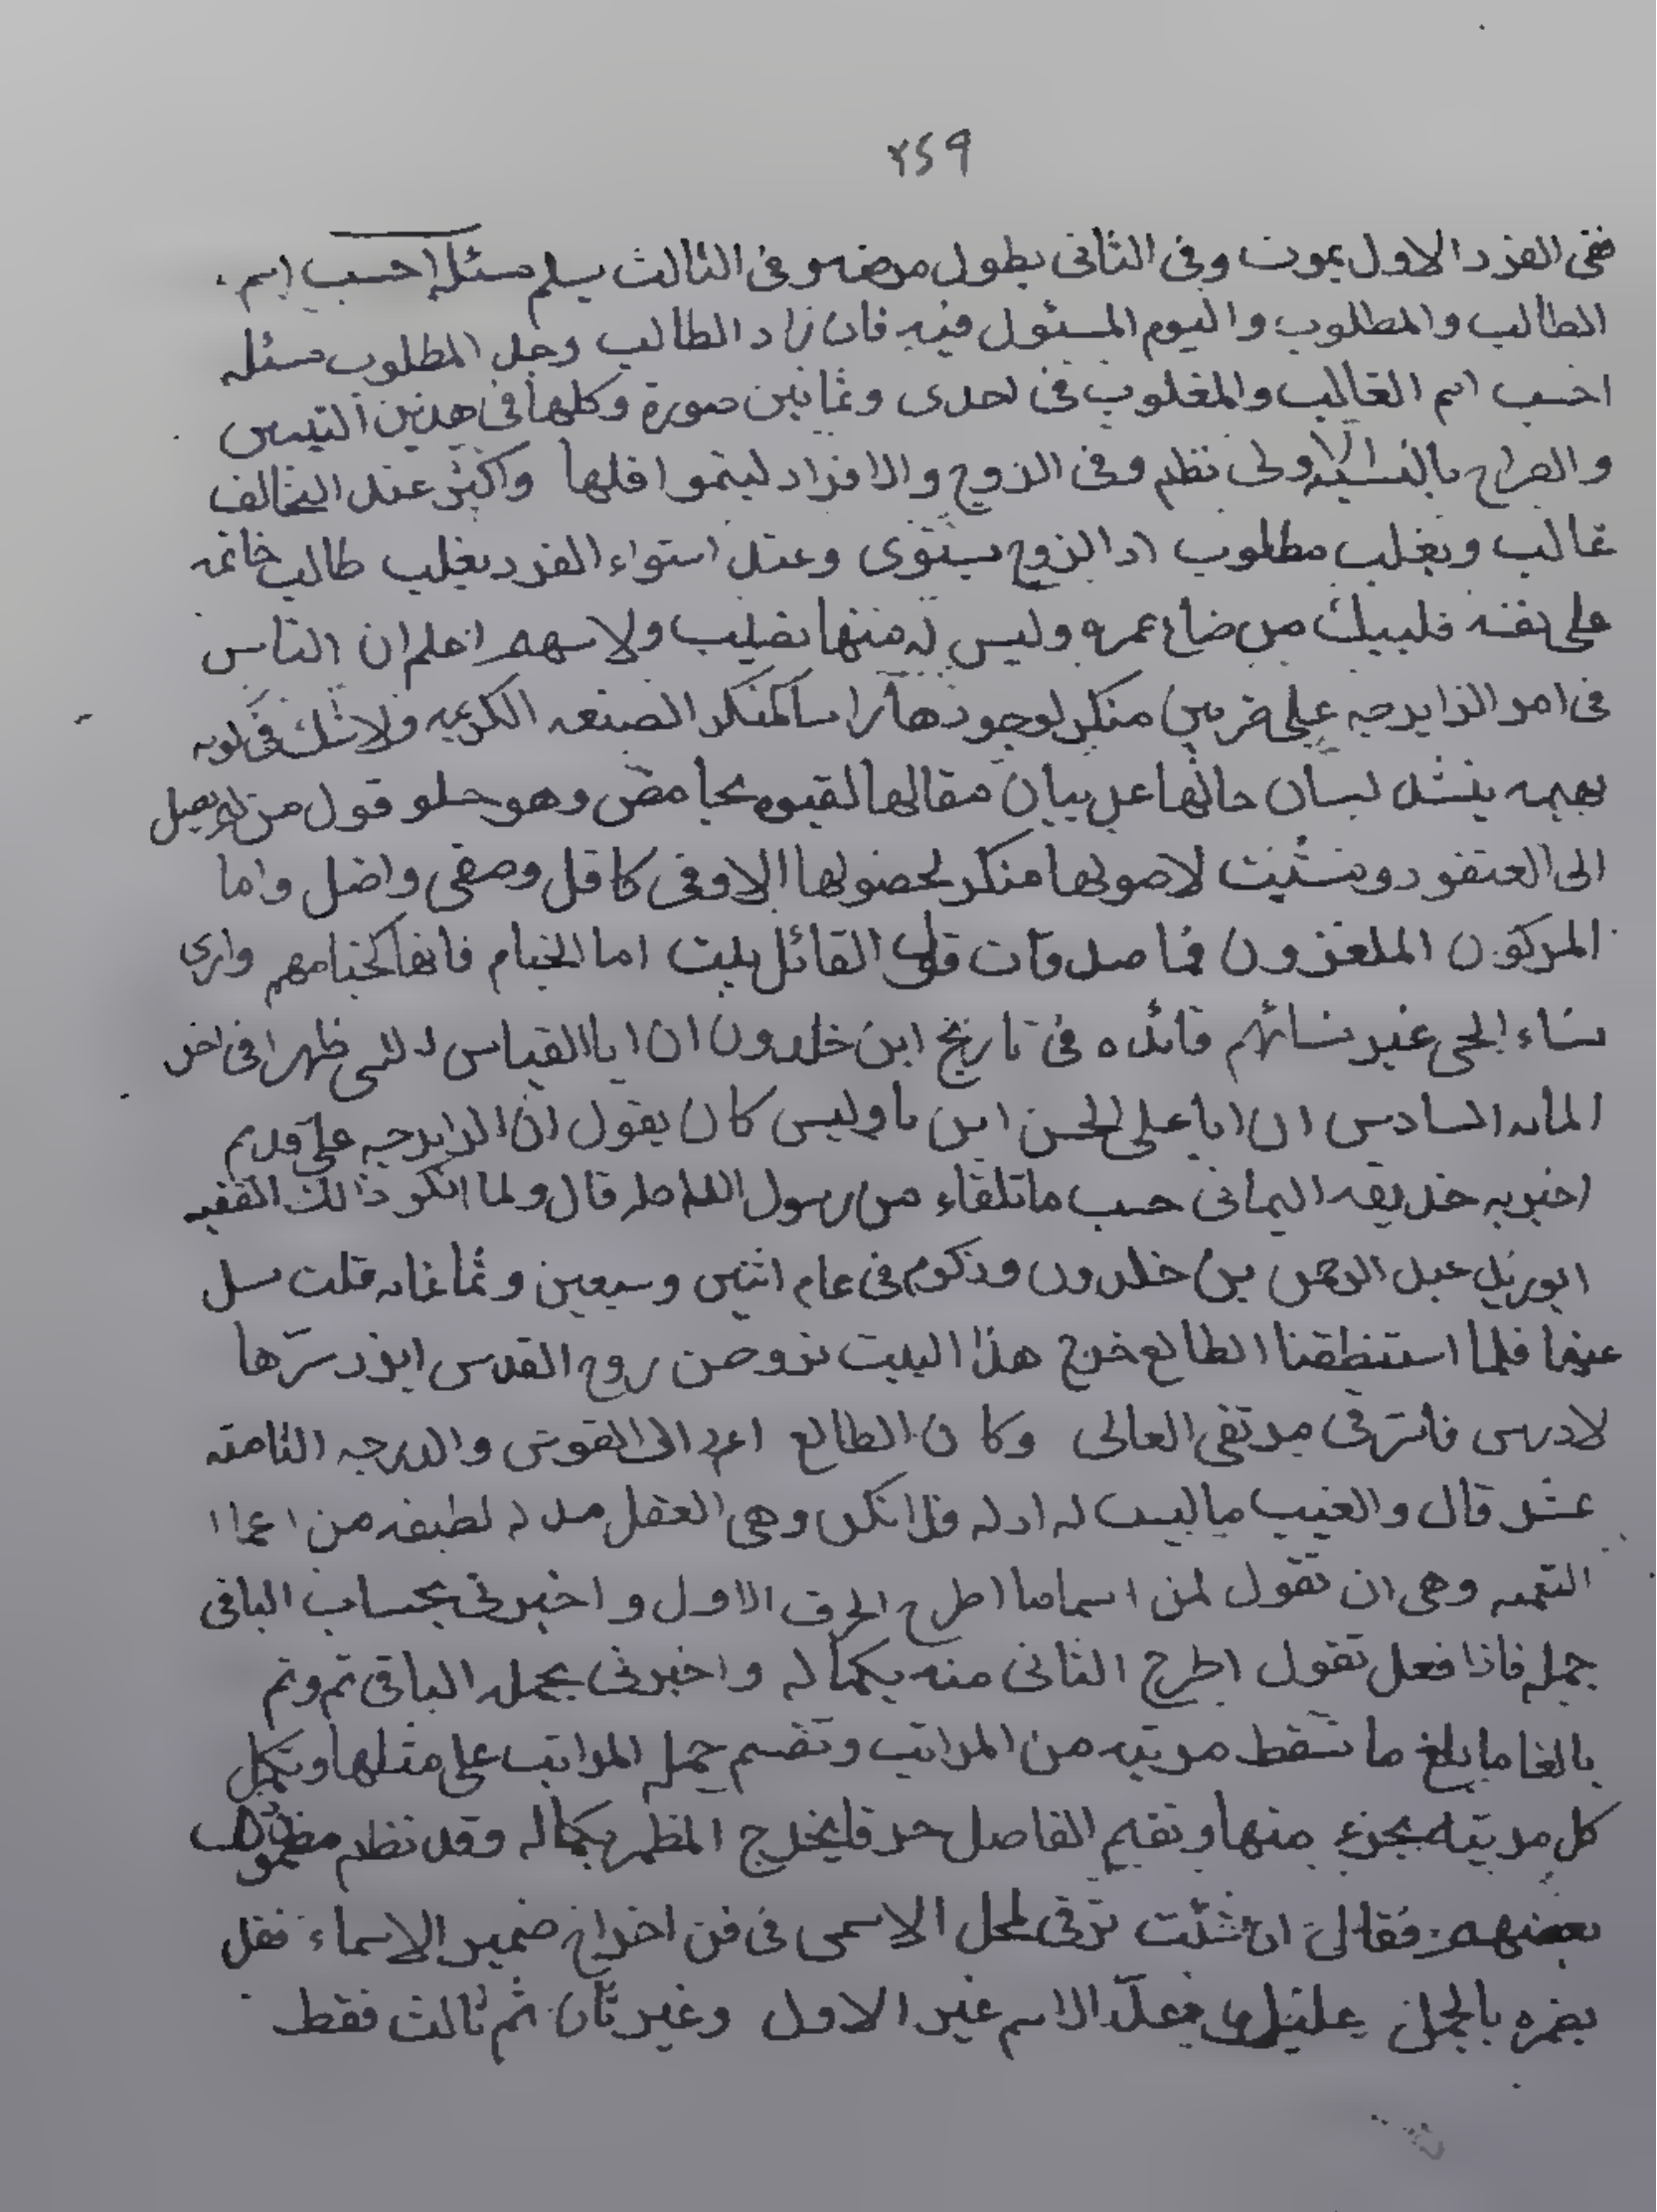 ٢٤٩
ففى الفرد الاول يموت وفى الثانى يطول مرضه وفى الثالث يسلم مسئلة احسب اسم
الطالب والمطلوب واليوم المسئول فيه فان زاد الطالب وجد المطلوب مسئله
احسب اسم الغالب والمغلوب فى احدى وثمانين صورة وكلها فى هذين البيتين
والطرح بالتسعة الاولى نظم وفى الزوج والافراد ليتموا اقلها واكثر عند التخالف
غالب ويغلب مطلوب اذا الزوج يستوى وعند استواء الفرد يغلب طالب خاتمه
على نفسه فليبك من ضاع عمره وليس له منها نصيب ولا سهم اعلم ان الناس
فى امر الزايرجه على ضربين منكر لوجودها راسا كمنكر الصنعه الكريمه ولا شك فى كونه
بهيمه ينشد لسان حالها عن بيان مقالها لقبوه بحامض وهو حلو قول من لم يصل
الى العنقود ومثبت لاصولها منكر لحصولها الا وفى كاقل وصفى واضل واما
المركون الملغزون فما صدقات قول القائل بيت اما الخيام فانها كخيامهم وارى
نساء الحى غير نسائهم فائده فى تاريخ ابن خلدون ان ابا القباس ظهر فى اخر
المائه السادس ان ابا على الحسن ابن باوليس كان يقول ان الزايرجه على قديم
اخبر به حذيفه اليمانى حسب ما تلقاء من رسول الله صلم قال ولما انكر ذالك الفقيه
ابو زيد عبد الرحمن بن خلدون وذكوم فى عام اثنين وسبعين وثمانمائه قلت سل
عنها فلما استنطقنا الطالع خرج هذا البيت تروحن روح القدس ابرز سرها
لادريس فاترقى مرتقى العالى وكان الطالع اعد الى القوس والدرجه الثامنه
عشر قال والغيب ما ليس له ادله فلا نكر وهى العقل لطيفه من اعمال
التعميه وهى ان تقول لمن اسما اطرح الحرف الاول واخبرنى بحساب الباقى
جمله فاذا فعل تقول اطرح الثانى منه بكماله واخبرنى بجمله الباقى ثم وثم
بالغا ما بلغ ما تسقط مرتبه من المراتب وتقسم جمله المراتب على مثلها وتكمل
كل مرتبه بجزء منها وتقيم الفاصل حرفا يخرج المظمر بكماله وقد نظم
بعضهم فقال ان شئت ترقى لمحل الاسمى فى فن اخراج ضمير الاسماء فقل
يضمره بالجمل فعد الاسم غير الاول وغير ثان ثم ثالث فقط